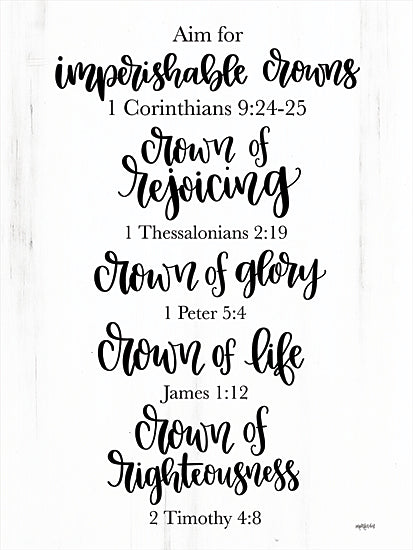 Aim for
imperishable crowns
1 Corinthians 9:24-25
crown of
rejoicing
1 Thessalonians 2:19
crown of glory
1 Peter 5:4
crown of life
James 1:12
crown of
righteousness
2 Timothy 4:8